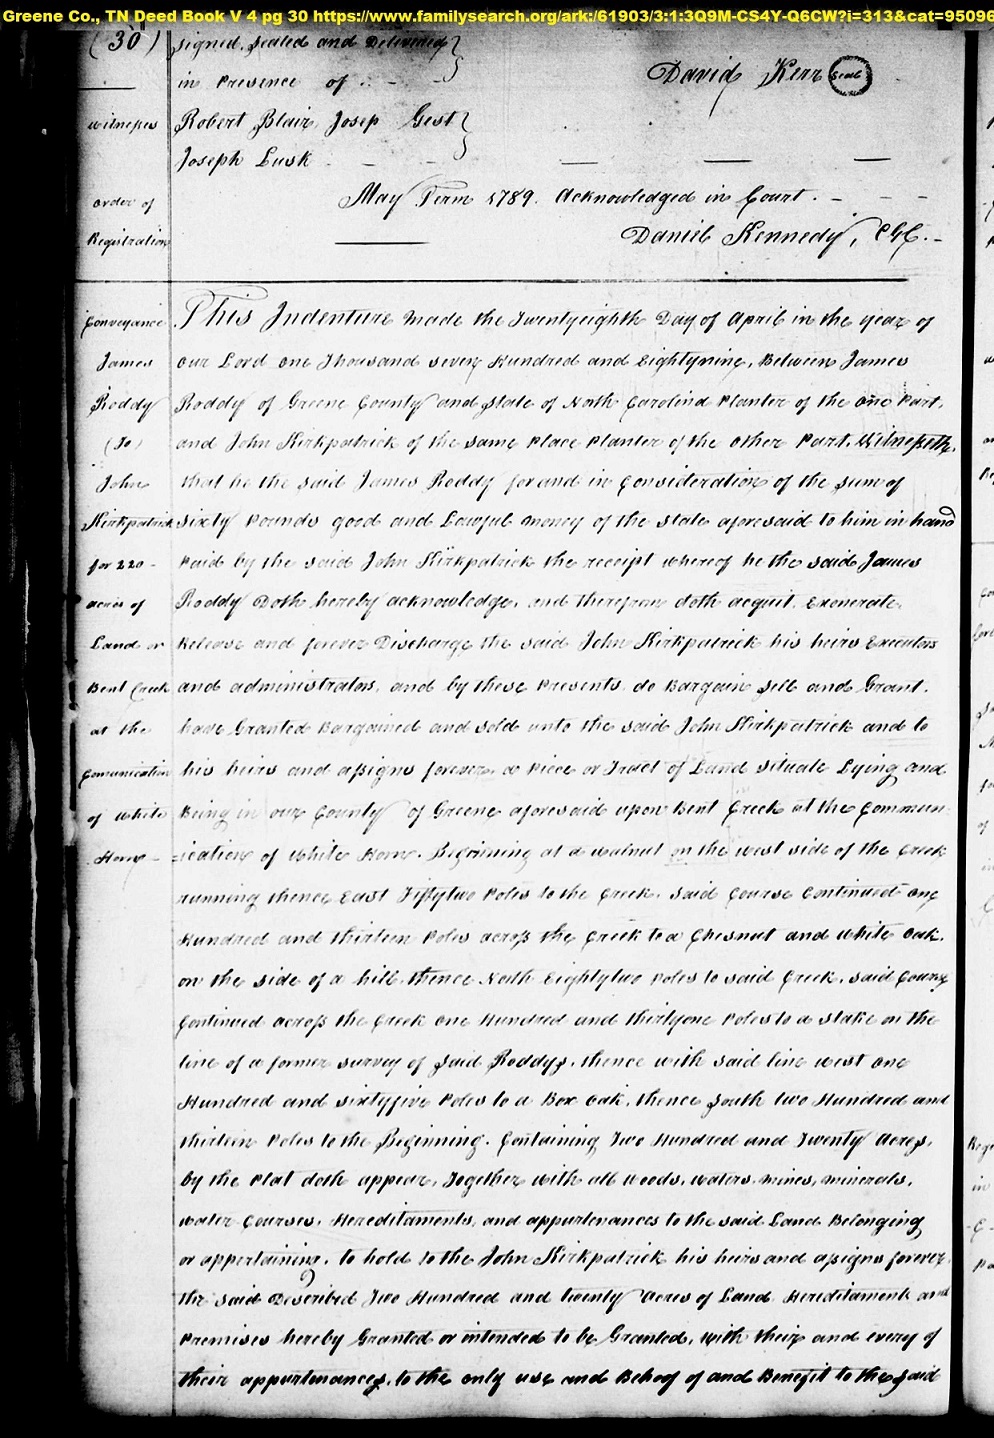 Greene Co., TN Deed Book V 4 pg 30 https://www.familysearch.org/ark:/61903/3:1:3Q9M-CS4Y-Q6CW?i=313&cat=95096
(30) signed, sealed and Delivered
in Presence of David Kerr Seal
witnesses Robert Blair, Josep Gest
Joseph Lusk
order of May Term 1789. Acknowledged in Court.
Registration Daniel Kennedy, ClC.
Conveyance This Indenture made the Twentyeighth Day of April in the year of
James our Lord one Thousand seven Hundred and Eightynine, Between James
Roddy Roddy of Greene County and State of North Carolina Planter of the one Part,
(To) and John Kirkpatrick of the same Place Planter of the other Part. Witnesseth,
John that he the said James Roddy for and in Consideration of the sum of
Kirkpatrick sixty Pounds good and Lawful money of the state aforesaid to him in hand
for 220 Paid by the said John Kirkpatrick the receipt whereof he the said James
acres of Roddy Doth hereby acknowledge, and therefrom doth acquit, Exonerate,
Land on Release and forever Discharge the said John Kirkpatrick his heirs Executors
Bent Creek and administrators, and by these Presents, do Bargain sell and Grant,
at the have Granted Bargained and sold unto the said John Kirkpatrick and to
Comunication his heirs and assigns forever, a Piece or Tract of Land situate Lying and
of White Being in our County of Greene aforesaid upon Bent Creek at the Commun-
Horn =ication of White Horn. Beginning at a walnut on the west side of the Creek
running thence East Fiftytwo Poles to the Creek, said Course Continued one
Hundred and thirteen Poles across the Creek to a Chesnut and white oak,
on the side of a hill, thence North Eightytwo Poles to said Creek, said Course
Continued across the Creek one Hundred and thirtyone Poles to a stake on the
line of a former survey of said Roddys, thence with said line west one
Hundred and sixtyfive Poles to a Box oak, thence South two Hundred and
thirteen Poles to the Beginning. Containing Two Hundred and Twenty Acres,
by the Plat doth appear, Together with all woods, waters, mines, minerals,
water Courses, Hereditaments, and appurtenances to the said Land Belonging
or appertaining, to hold to the John Kirkpatrick his heirs and assigns forever
the said Described Two Hundred and twenty acres of Land Hereditaments and
Premises hereby Granted or intended to be Granted, with their and every of
their appurtenances, to the only use and Behoof of and Benefit to the said